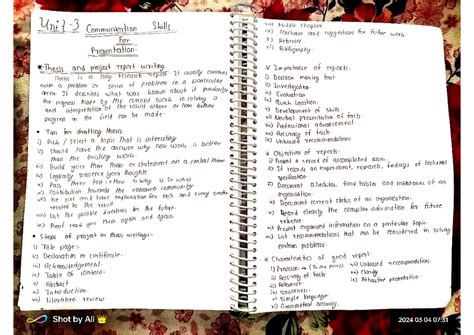 Unit-3 Communication Skills
For
Presentation:
• Thesis and project report writing:
There is a long research report. It usually
with a problem or series of problems in a particular
area. It describes what was known about it previously
the progress made by the current work in solving it
and interpretation of the result where or how further
progress in the field can be made.
• Tips for drafting thesis:
i) Pick / select a topic that is interesting
ii) Should have the answer why new work is better
than the existing work.
iii) Build your thesis or statement on a
iv) Logically your thoughts
v)
vi) Contribution towards the research community
vii) and have explanation for each and every
related to the result
viii) List the possible directions for the future
ix) Proof read you them again and again
• Steps of project or thesis writing:-
i) Title page:-
ii) Declaration or certificate.
iii) Acknowledgement.
iv) Table of content
v) Abstract
vi) Introduction.
vii) Literature review
viii) Middle chapter
ix) Conclusion and suggestions for further work.
x) Reference
xi) Bibliography.
Importance of reports:
i) Decision making tool
ii) Investigation
iii) Evaluation
iv) Quick location
v) Development of skills
vi) presentation of facts
vii) Professional advancement.
viii) Accuracy of facts
ix) recommendations
Objectives of reports:
i) Present a record of accomplished work
ii) It records an experiment, research, findings of technical
iii) Document schedules, time tables and of an
organisation.
iv) Document current status of an organisation.
v) Record clearly the complex information for future
reference.
vi) Present organised information on a particular topic.
vii) List recommendations that can be considered in solving
certain problems.
Characteristics of good report:
i) Precision
ii) Accuracy of facts
iii) Relevance
iv)
v) Simple language
vi) Grammatical accuracy.
recommendation.
Clarity
Attractive presentation.
Shot by Ali
2024 03 04 07:31